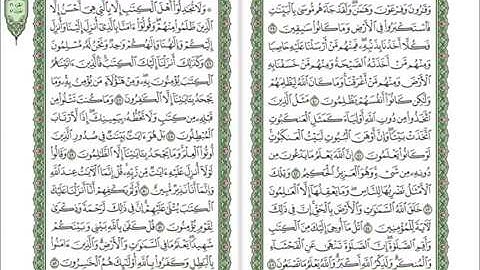 وَقَٰرُونَ وَفِرْعَوْنَ وَهَٰمَٰنَۖ وَلَقَدْ جَآءَهُم مُّوسَىٰ بِٱلْبَيِّنَٰتِ
فَٱسْتَكْبَرُوا۟ فِى ٱلْأَرْضِ وَمَا كَانُوا۟ سَٰبِقِينَ ٣٩
فَكُلًّا أَخَذْنَا بِذَنۢبِهِۦۖ فَمِنْهُم مَّنْ أَرْسَلْنَا عَلَيْهِ حَاصِبًا
وَمِنْهُم مَّنْ أَخَذَتْهُ ٱلصَّيْحَةُ وَمِنْهُم مَّنْ خَسَفْنَا بِهِ
ٱلْأَرْضَ وَمِنْهُم مَّنْ أَغْرَقْنَاۚ وَمَا كَانَ ٱللَّهُ لِيَظْلِمَهُمْ
وَلَٰكِن كَانُوٓا۟ أَنفُسَهُمْ يَظْلِمُونَ ٤٠ مَثَلُ ٱلَّذِينَ
ٱتَّخَذُوا۟ مِن دُونِ ٱللَّهِ أَوْلِيَآءَ كَمَثَلِ ٱلْعَنكَبُوتِ
ٱتَّخَذَتْ بَيْتًاۖ وَإِنَّ أَوْهَنَ ٱلْبُيُوتِ لَبَيْتُ ٱلْعَنكَبُوتِۖ
لَوْ كَانُوا۟ يَعْلَمُونَ ٤١ إِنَّ ٱللَّهَ يَعْلَمُ مَا يَدْعُونَ مِن
دُونِهِۦ مِن شَىْءٍۚ وَهُوَ ٱلْعَزِيزُ ٱلْحَكِيمُ ٤٢ وَتِلْكَ
ٱلْأَمْثَٰلُ نَضْرِبُهَا لِلنَّاسِۖ وَمَا يَعْقِلُهَآ إِلَّا ٱلْعَٰلِمُونَ
٤٣ خَلَقَ ٱللَّهُ ٱلسَّمَٰوَٰتِ وَٱلْأَرْضَ بِٱلْحَقِّۚ إِنَّ فِى ذَٰلِكَ
لَءَايَةً لِّلْمُؤْمِنِينَ ٤٤ ٱتْلُ مَآ أُوحِىَ إِلَيْكَ مِنَ ٱلْكِتَٰبِ
وَأَقِمِ ٱلصَّلَوٰةَۖ إِنَّ ٱلصَّلَوٰةَ تَنْهَىٰ عَنِ ٱلْفَحْشَآءِ
وَٱلْمُنكَرِۗ وَلَذِكْرُ ٱللَّهِ أَكْبَرُۗ وَٱللَّهُ يَعْلَمُ مَا تَصْنَعُونَ ٤٥
۞ وَلَا تُجَٰدِلُوٓا۟ أَهْلَ ٱلْكِتَٰبِ إِلَّا بِٱلَّتِى هِىَ أَحْسَنُ إِلَّا
ٱلَّذِينَ ظَلَمُوا۟ مِنْهُمْۖ وَقُولُوٓا۟ ءَامَنَّا بِٱلَّذِىٓ أُنزِلَ
إِلَيْنَا وَأُنزِلَ إِلَيْكُمْ وَإِلَٰهُنَا وَإِلَٰهُكُمْ وَٰحِدٌ وَنَحْنُ لَهُۥ مُسْلِمُونَ
٤٦ وَكَذَٰلِكَ أَنزَلْنَآ إِلَيْكَ ٱلْكِتَٰبَۚ فَٱلَّذِينَ ءَاتَيْنَٰهُمُ
ٱلْكِتَٰبَ يُؤْمِنُونَ بِهِۦۖ وَمِنْ هَٰٓؤُلَآءِ مَن يُؤْمِنُ بِهِۦۚ وَمَا
يَجْحَدُ بِـَٔايَٰتِنَآ إِلَّا ٱلْكَٰفِرُونَ ٤٧ وَمَا كُنتَ تَتْلُوا۟ مِن
قَبْلِهِۦ مِن كِتَٰبٍ وَلَا تَخُطُّهُۥ بِيَمِينِكَۖ إِذًا لَّٱرْتَابَ
ٱلْمُبْطِلُونَ ٤٨ بَلْ هُوَ ءَايَٰتٌۢ بَيِّنَٰتٌ فِى صُدُورِ ٱلَّذِينَ
أُوتُوا۟ ٱلْعِلْمَۚ وَمَا يَجْحَدُ بِـَٔايَٰتِنَآ إِلَّا ٱلظَّٰلِمُونَ ٤٩ وَقَالُوا۟
لَوْلَآ أُنزِلَ عَلَيْهِ ءَايَٰتٌ مِّن رَّبِّهِۦۖ قُلْ إِنَّمَا ٱلْءَايَٰتُ عِندَ ٱللَّهِ
وَإِنَّمَآ أَنَا۠ نَذِيرٌ مُّبِينٌ ٥٠ أَوَلَمْ يَكْفِهِمْ أَنَّآ أَنزَلْنَا عَلَيْكَ
ٱلْكِتَٰبَ يُتْلَىٰ عَلَيْهِمْۚ إِنَّ فِى ذَٰلِكَ لَرَحْمَةً وَذِكْرَىٰ
لِقَوْمٍ يُؤْمِنُونَ ٥١ قُلْ كَفَىٰ بِٱللَّهِ بَيْنِى وَبَيْنَكُمْ
شَهِيدًاۖ يَعْلَمُ مَا فِى ٱلسَّمَٰوَٰتِ وَٱلْأَرْضِۗ وَٱلَّذِينَ ءَامَنُوا۟
بِٱلْبَٰطِلِ وَكَفَرُوا۟ بِٱللَّهِ أُو۟لَٰٓئِكَ هُمُ ٱلْخَٰسِرُونَ ٥٢